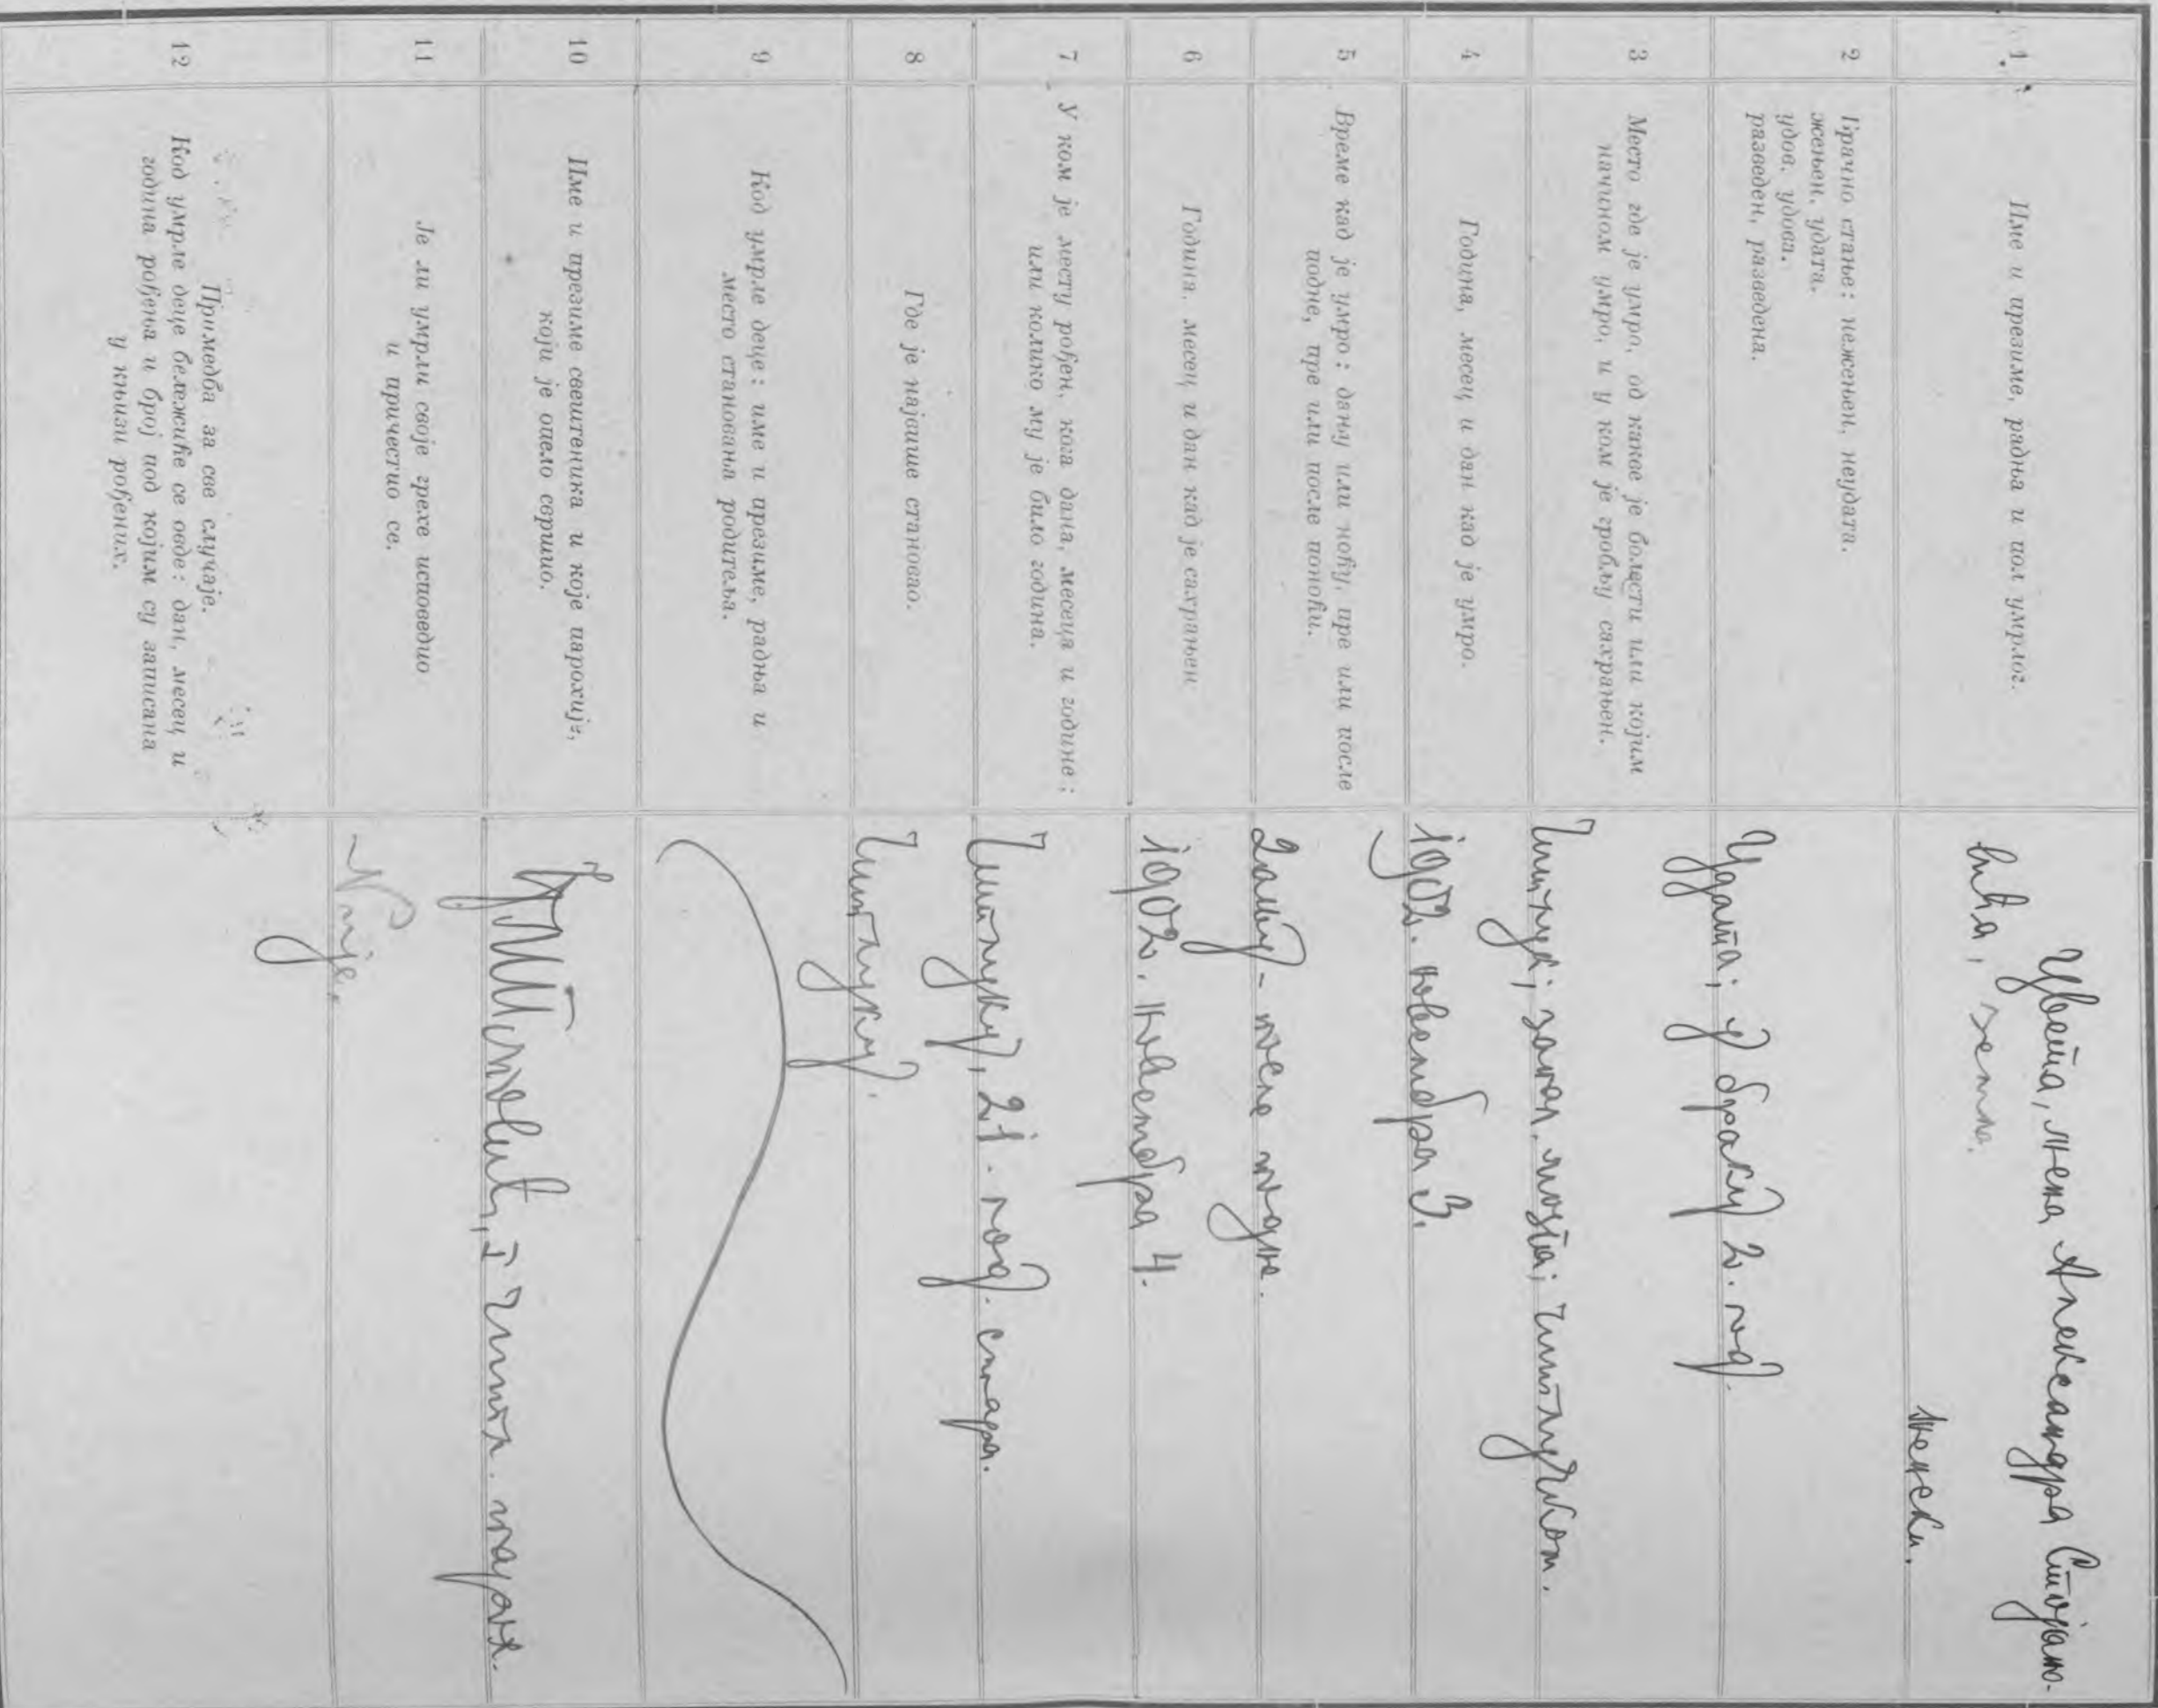 1
Име и презиме, радња и пол умрлог.
Цвета, жена Александра Стојано-
вића, земљ.
женски.
2
Брачно стање: нежењен, неудата.
жењен, удата.
удов, удова.
разведен, разведена.
Удата; у браку 2. год.
3
Место где је умро, од какве је болести или којим
начином умро, и у ком је гробљу сахрањен.
Читлук; запал. мозга; читлучком.
4
Година, месец и дан кад је умро.
1902. новембра 3.
5
Време кад је умро: дању или ноћу, пре или после
подне, пре или после поноћи.
Дању - после подне.
6
Година, месец и дан кад је сахрањен
1902. новембра 4.
7
У ком је месту рођен, кога дана, месеца и године;
или колико му је било година.
Читлуку, 21. год. стара.
8
Где је највише становао.
Читлуку.
9
Код умрле деце: име и презиме, радња и
место становања родитеља.
10
Име и презиме свештеника и које парохије,
који је опело свршио.
I читл. парох.
11
Је ли умрли своје грехе исповедио
и причестио се.
Није.
12
Примедба за све случаје.
Код умрле деце бележиће се овде: дан, месец и
година рођења и број под којим су записана
у књизи рођених.